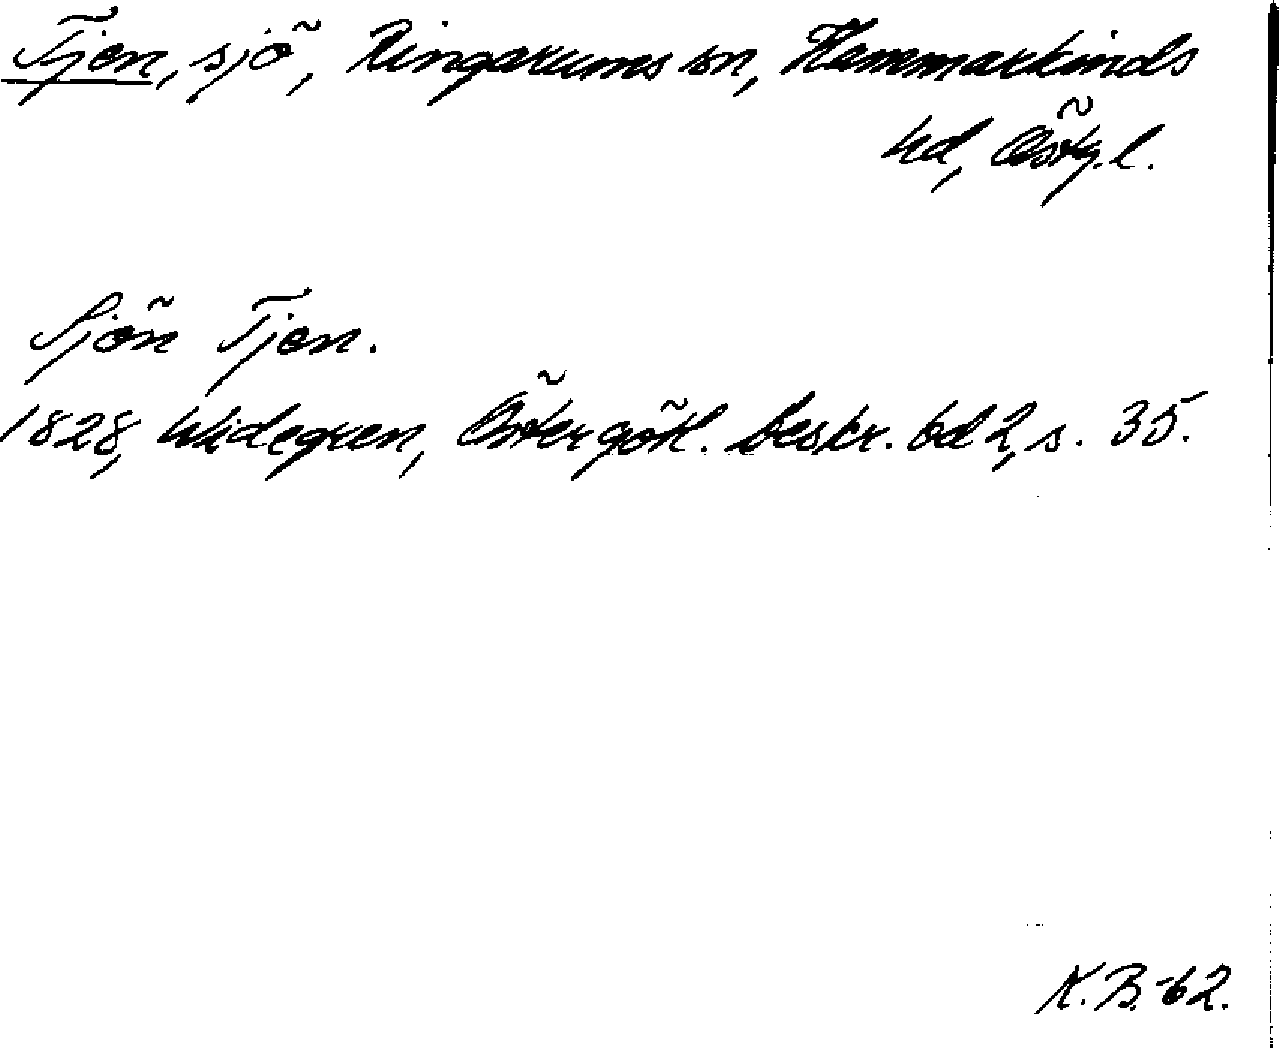 Tjen, sjö, Ringarums sn, Hammarkinds
hd, Östg.l.
Sjön Tjen.
1828, Widegren, Östergötl. beskr. bd 2, s. 35.
K.B.-62.